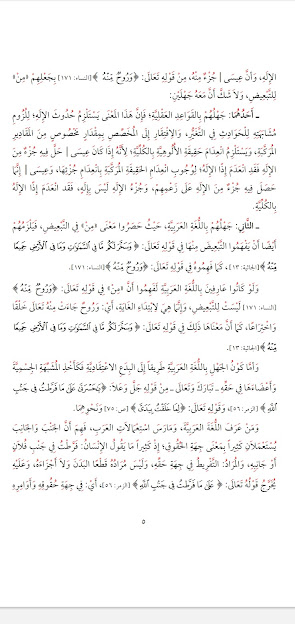 الإِلَهِ، وَأَنَّ عِيسَى | جُزْءٌ مِنْهُ، مِنْ قَوْلِهِ تَعَالَى: ﴿وَرُوحٌ مِّنْهُ﴾ [النساء: ١٧١] بِجَعْلِهِمْ «مِنْ»
لِلتَّبْعِيضِ، وَلَا شَكَّ أَنَّ مَعَهُ جَهْلَيْنِ:
ـ أَحَدُهُمَا: جَهْلُهُمْ بِالقَوَاعِدِ العَقْلِيَّةِ؛ فَإِنَّ هَذَا المَعْنَى يَسْتَلْزِمُ حُدُوثَ الإِلَهِ؛ لِلُزُومِ
مُشَابَهَتِهِ لِلْحَوَادِثِ فِي التَّغَيُّرِ، وَالافْتِقَارِ إِلَى المُخَصِّصِ بِمِقْدَارٍ مَخْصُوصٍ مِنَ المَقَادِيرِ
المُرَكَّبَةِ، وَيَسْتَلْزِمُ انْعِدَامَ حَقِيقَةِ الأُلُوهِيَّةِ بِالكُلِّيَّةِ؛ لِأَنَّهُ إِذَا كَانَ عِيسَى | حَلَّ فِيهِ جُزْءٌ مِنَ
الإِلَهِ فَقَدِ انْعَدَمَ إِذًا الإِلَهُ؛ لِوُجُوبِ انْعِدَامِ الحَقِيقَةِ المُرَكَّبَةِ بِانْعِدَامِ جُزْئِهَا، وَعِيسَى | إِنَّمَا
حَصَلَ فِيهِ جُزْءٌ مِنَ الإِلَهِ عَلَى زَعْمِهِمْ، وَجُزْءُ الإِلَهِ لَيْسَ بِإِلَهٍ، فَقَدِ انْعَدَمَ إِذًا الإِلَهُ
بِالكُلِّيَّةِ.
ـ الثَّانِي: جَهْلُهُمْ بِاللُّغَةِ العَرَبِيَّةِ، حَيْثُ حَصَرُوا مَعْنَى «مِنْ» فِي التَّبْعِيضِ، فَيَلْزَمُهُمْ
أَيْضًا أَنْ يَفْهَمُوا التَّبْعِيضَ مِنْهَا فِي قَوْلِهِ تَعَالَى: ﴿وَسَخَّرَ لَكُم مَّا فِي السَّمَاوَاتِ وَمَا فِي الْأَرْضِ جَمِيعًا
مِّنْهُ﴾ [الجاثية: ١٣]، كَمَا فَهِمُوهُ فِي قَوْلِهِ تَعَالَى: ﴿وَرُوحٌ مِّنْهُ﴾ [النساء: ١٧١].
وَلَوْ كَانُوا عَارِفِينَ بِاللُّغَةِ العَرَبِيَّةِ لَفَهِمُوا أَنَّ «مِنْ» فِي قَوْلِهِ تَعَالَى: ﴿وَرُوحٌ مِّنْهُ﴾
[النساء: ١٧١] لَيْسَتْ لِلتَّبْعِيضِ، وَإِنَّمَا هِيَ لابْتِدَاءِ الغَايَةِ، أَيْ: وَرُوحٌ جَاءَتْ مِنْهُ تَعَالَى خَلْقًا
وَاخْتِرَاعًا، كَمَا أَنَّ مَعْنَاهَا ذَلِكَ فِي قَوْلِهِ تَعَالَى: ﴿وَسَخَّرَ لَكُم مَّا فِي السَّمَاوَاتِ وَمَا فِي الْأَرْضِ جَمِيعًا
مِّنْهُ﴾ [الجاثية: ١٣].
وَأَمَّا كَوْنُ الجَهْلِ بِاللُّغَةِ العَرَبِيَّةِ طَرِيقًا إِلَى البِدَعِ الاعْتِقَادِيَّةِ فَكَأَخْذِ المُشَبِّهَةِ الجِسْمِيَّةَ
وَأَعْضَاءَهَا فِي حَقِّهِ ـ تَبَارَكَ وَتَعَالَى ـ مِنْ قَوْلِهِ جَلَّ وَعَلَا: ﴿يَاحَسْرَتَى عَلَى مَا فَرَّطتُ فِي جَنبِ
اللَّهِ﴾ [الزمر: ٥٦]، وَقَوْلِهِ تَعَالَى: ﴿لِمَا خَلَقْتُ بِيَدَيَّ﴾ [ص: ٧٥] وَنَحْوِهِمَا.
وَمَنْ عَرَفَ اللُّغَةَ العَرَبِيَّةَ، وَمَارَسَ اسْتِعْمَالَاتِ العَرَبِ، فَهِمَ أَنَّ الجَنْبَ وَالجَانِبَ
يُسْتَعْمَلَانِ كَثِيرًا بِمَعْنَى جِهَةِ الحُقُوقِ؛ إِذْ كَثِيرًا مَا يَقُولُ الإِنْسَانُ: فَرَّطْتُ فِي جَنْبِ فُلَانٍ
أَوْ جَانِبِهِ، وَالمُرَادُ: التَّفْرِيطُ فِي جِهَةِ حَقِّهِ، وَلَيْسَ مُرَادُهُ قَطْعًا البَدَنَ وَلَا أَجْزَاءَهُ، وَعَلَيْهِ
يُخَرَّجُ قَوْلُهُ تَعَالَى: ﴿عَلَى مَا فَرَّطتُ فِي جَنبِ اللَّهِ﴾ [الزمر: ٥٦]، أَيْ: فِي جِهَةِ حُقُوقِهِ وَأَوَامِرِهِ
٥